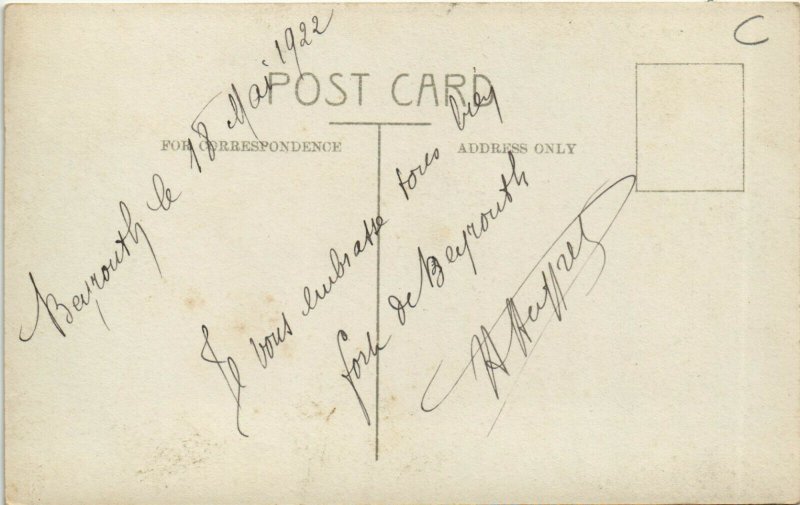 C
POST CARD
FOR CORRESPONDENCE
ADDRESS ONLY
Beyrouth le 18 Mai 1922
Je vous embrasse tous bien
fort de Beyrouth